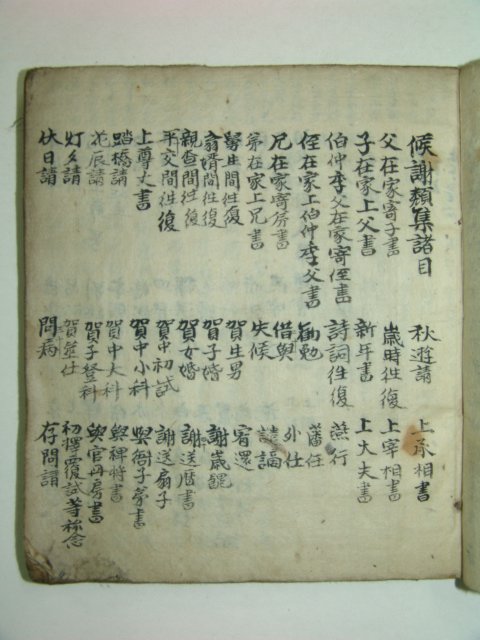 候謝類集諸目
父在家寄子書
子在家上父書
伯仲季父在家寄侄書
侄在家上伯仲季父書
兄在家寄弟書
弟在家上兄書
舅生間往復
翁婿間往復
親査間往復
平交間往復
上尊丈書
踏橋請
花辰請
灯夕請
伏日請
秋遊請
歲時往復
新年書
詩詞往復
勸勉
借與
失候
賀生男
賀子婚
賀女婚
賀中初試
賀中小科
賀中大科
賀子登科
賀筮仕
問病
上承相書
上宰相書
上大夫書
燕行
藩任
外仕
譴謫
宥還
謝歲饌
謝送曆書
謝送扇子
與衙子弟書
與裨將書
與官冊房書
初擇覆試等
存問